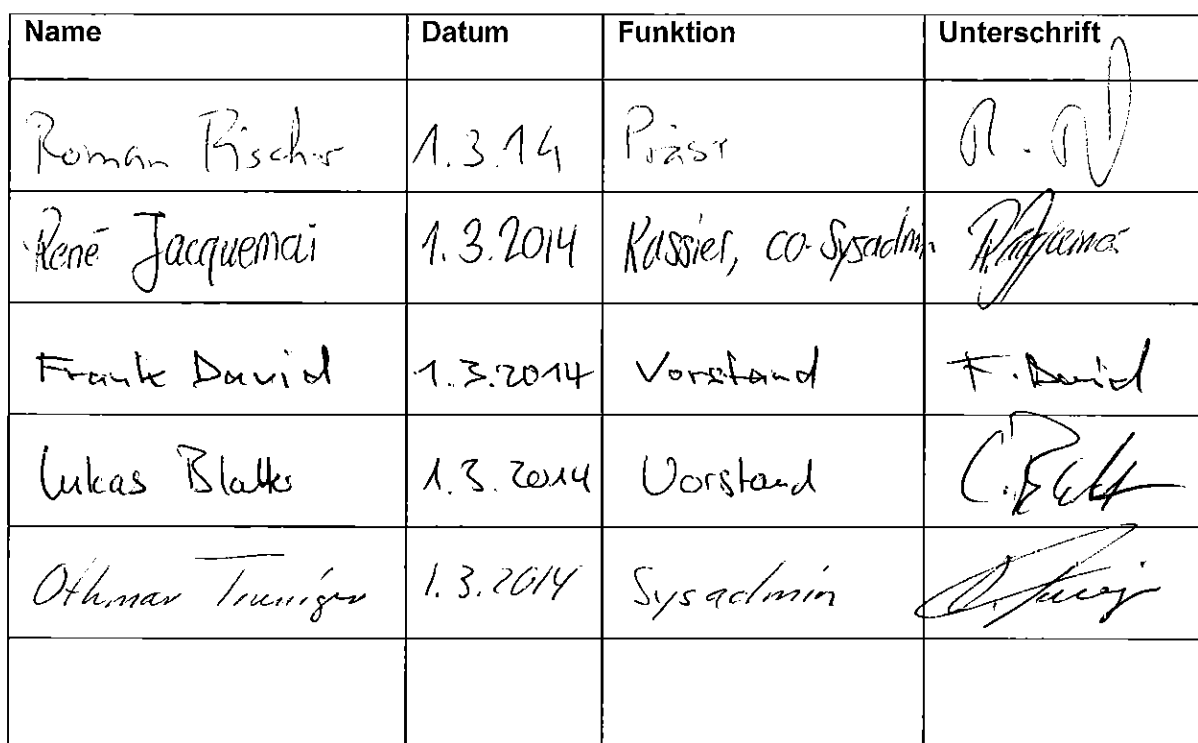 Name Datum Funktion Unterschrift
Roman Fischer 1.3.14 Präsi
René Jacquemai 1.3.2014 Kassier, co-Sysadmin
Frank David 1.3.2014 Vorstand F. David
Lukas Blatter 1.3.2014 Vorstand
Othmar Truniger 1.3.2014 Sysadmin